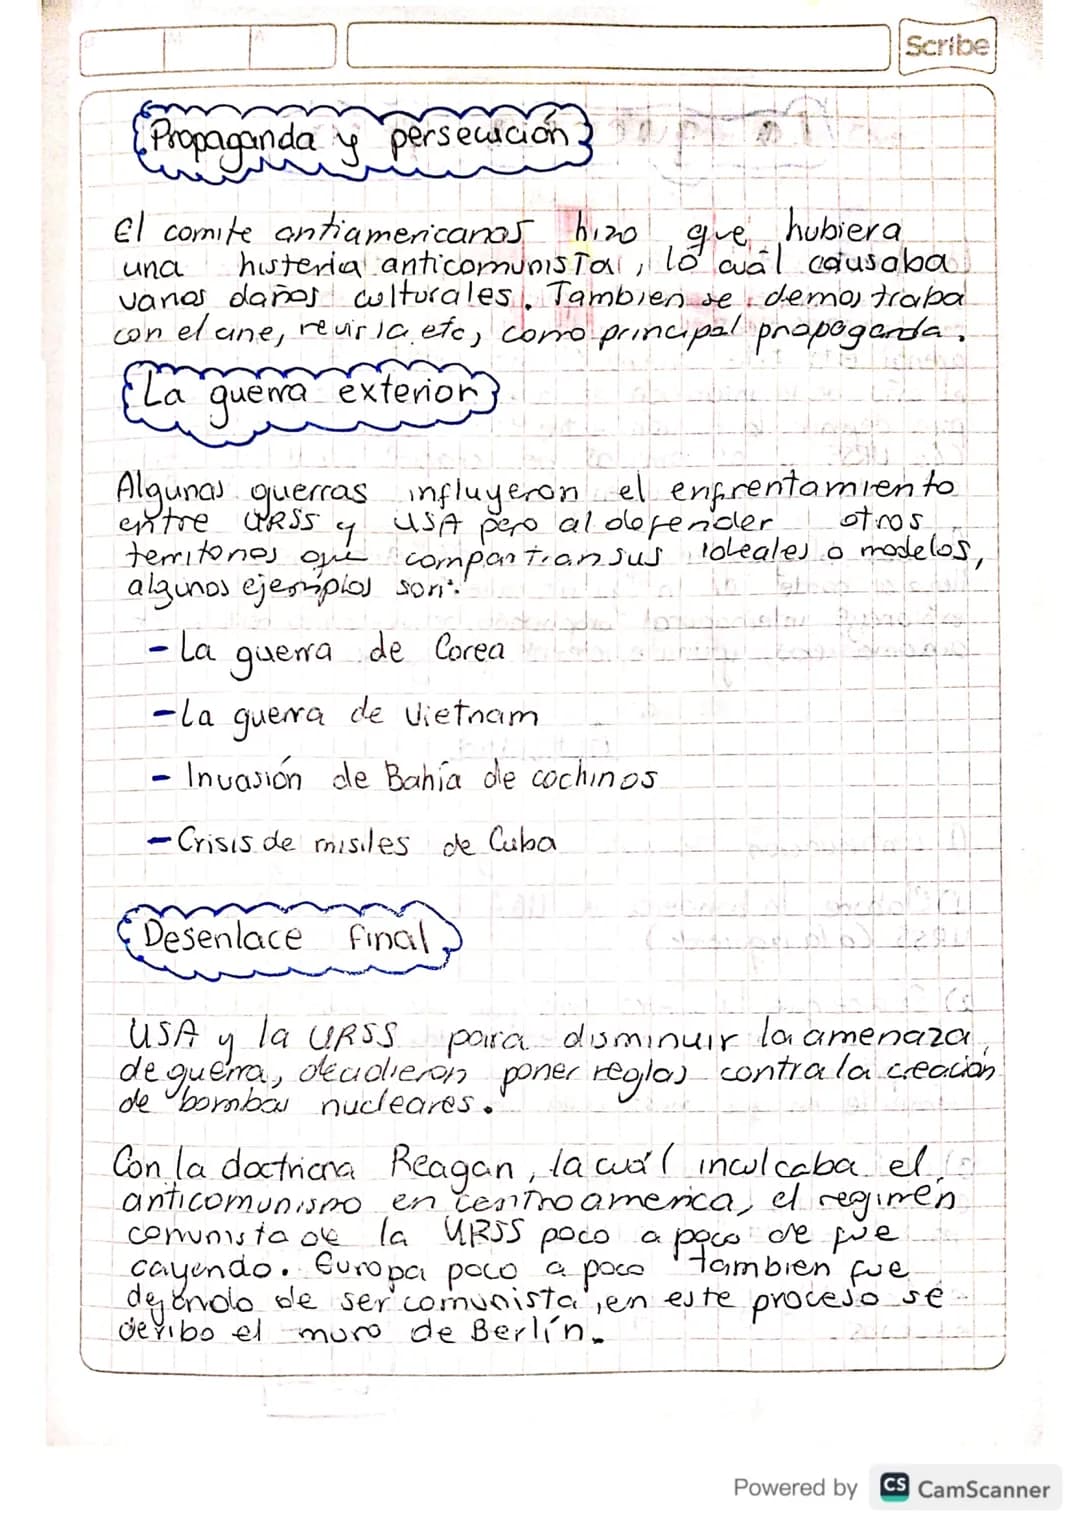 Scribe
Propaganda y persecución
El comite antiamericanos hizo que hubiera
una histeria anticomunista, lo cuál causaba
varios daños culturales. Tambien se demostraba
con el cine, revista etc, como principal propaganda.
La guerra exterior
Algunas guerras influyeron el enfrentamiento
entre URSS y USA pero al defender otros
territorios que compartian sus ideales o modelos,
algunos ejemplos son:
- La guerra de Corea
- La guerra de Vietnam
- Invasión de Bahía de cochinos
- Crisis de misiles de Cuba
Desenlace final
USA y la URSS para disminuir la amenaza
de guerra, decidieron poner reglas contra la creación
de bombas nucleares.
Con la doctrina Reagan, la cuál inculcaba el
anticomunismo en centroamerica, el regimen
comunista de la URSS poco a poco de fue
cayendo. Europa poco a poco tambien fue
dejando de ser comunista, en este proceso se
deribo el muro de Berlín.
Powered by CS CamScanner